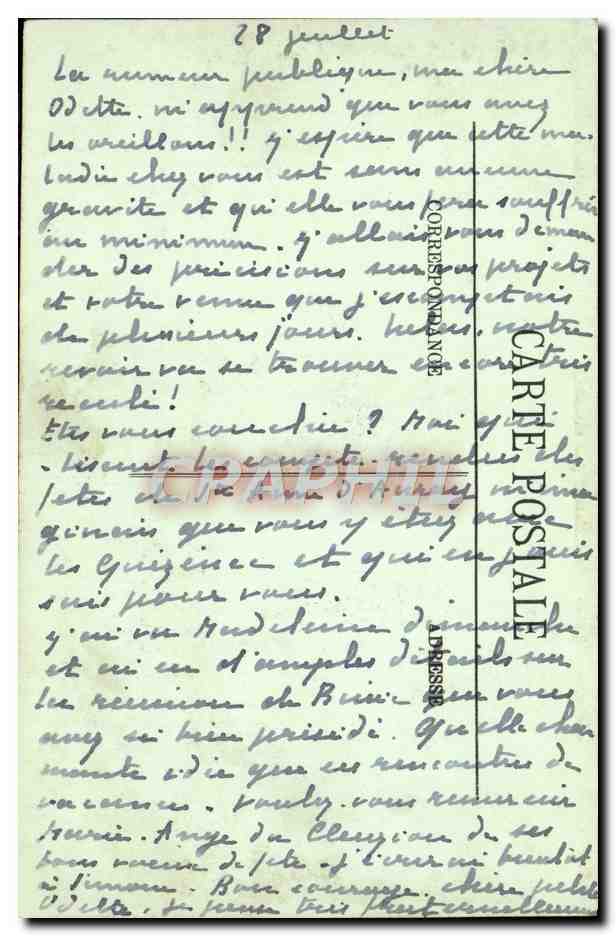 28 juillet
La rumeur publique, ma chère
Odette, m'apprend que vous avez
les oreillons!! J'espère que cette ma-
ladie chez vous est sans aucune
gravité et qu'elle vous fera souffrir
au minimum. J'allais vous deman
der des précisions sur vos projets
et votre venue que j'escomptais
de plusieurs jours. Hélas, notre
revoir va se trouver encore très
reculé!
Etes vous couchée? Moi qui
lisant les comptes-rendus des
fêtes de Ste Anne d'Auray m'ima
ginais que vous y étiez avec
les et qui en jouis
sais pour vous.
J'ai vu Madeleine dimanche
et ai eu d'amples détails sur
la réunion de Binic que vous
avez si bien présidé. Quelle char
mante idée que ces rencontres de
vacances. Voulez-vous remercier
Marie-Ange du Cleuziou de ses
bons voeux de fête. J'écrirai bientôt
à Simone. Bon courage, chère petite
Odette. Je pense très fraternellement
CORRESPONDANCE
CARTE POSTALE
ADRESSE
CPAPHIL